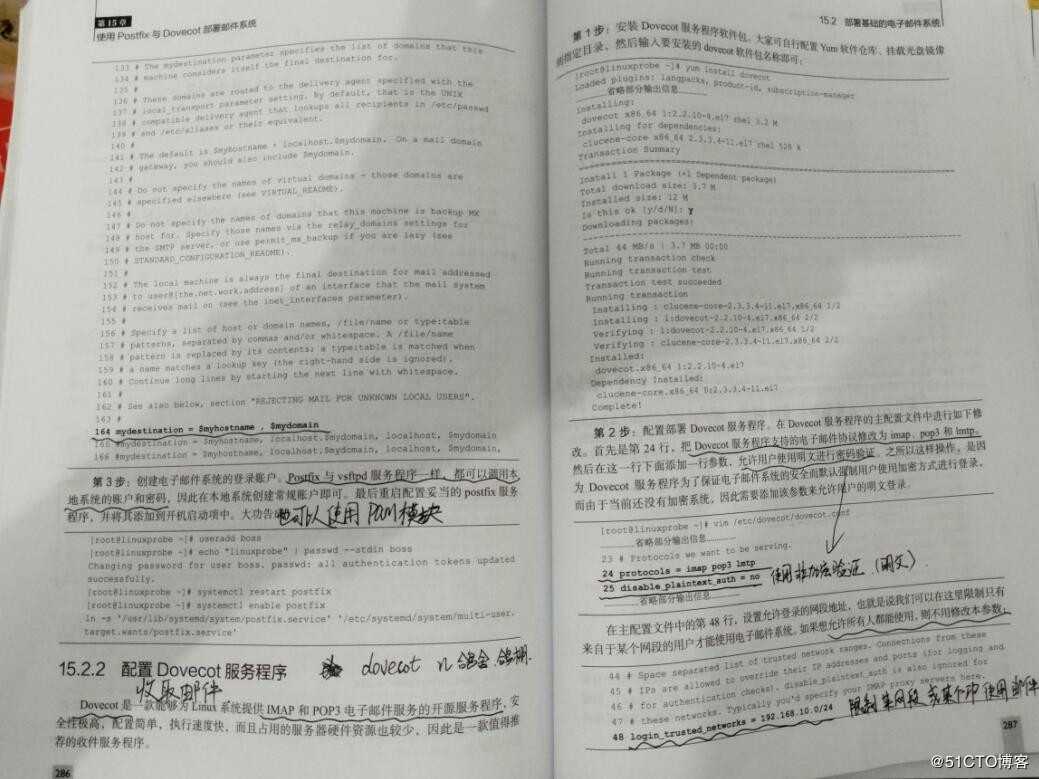 第15章
使用 Postfix 与 Dovecot 部署邮件系统
133 # The mydestination parameter specifies the list of domains that this
134 # machine considers itself the final destination for.
135 #
136 # These domains are routed to the delivery agent specified with the
137 # local_transport parameter setting. By default, that is the UNIX
138 # compatible delivery agent that lookups all recipients in /etc/passwd
139 # and /etc/aliases or their equivalent.
140 #
141 # The default is $myhostname + localhost.$mydomain. On a mail domain
142 # gateway, you should also include $mydomain.
143 #
144 # Do not specify the names of virtual domains - those domains are
145 # specified elsewhere (see VIRTUAL_README).
146 #
147 # Do not specify the names of domains that this machine is backup MX
148 # host for. Specify those names via the relay_domains settings for
149 # the SMTP server, or use permit_mx_backup if you are lazy (see
150 # STANDARD_CONFIGURATION_README).
151 #
152 # The local machine is always the final destination for mail addressed
153 # to user@[the.net.work.address] of an interface that the mail system
154 # receives mail on (see the inet_interfaces parameter).
155 #
156 # Specify a list of host or domain names, /file/name or type:table
157 # patterns, separated by commas and/or whitespace. A /file/name
158 # pattern is replaced by its contents; a type:table is matched when
159 # a name matches a lookup key (the right-hand side is ignored).
160 # Continue long lines by starting the next line with whitespace.
161 #
162 # See also below, section "REJECTING MAIL FOR UNKNOWN LOCAL USERS".
163 #
164 mydestination = $myhostname , $mydomain
165 #mydestination = $myhostname, localhost.$mydomain, localhost, $mydomain
166 #mydestination = $myhostname, localhost.$mydomain, localhost, $mydomain
第 3 步：创建电子邮件系统的登录账户。Postfix 与 vsftpd 服务程序一样，都可以调用本
地系统的账户和密码，因此在本地系统创建常规账户即可。最后重启配置妥当的 postfix 服务
程序，并将其添加到开机启动项中。大功告成
也可以使用 PAM模块
[root@linuxprobe ~]# useradd boss
[root@linuxprobe ~]# echo "linuxprobe" | passwd --stdin boss
Changing password for user boss. passwd: all authentication tokens updated
successfully.
[root@linuxprobe ~]# systemctl restart postfix
[root@linuxprobe ~]# systemctl enable postfix
ln -s '/usr/lib/systemd/system/postfix.service' '/etc/systemd/system/multi-user.
target.wants/postfix.service'
15.2.2 配置 Dovecot 服务程序
dovecot n
收取邮件
Dovecot 是一款能够为 Linux 系统提供 IMAP 和 POP3 电子邮件服务的开源服务程序，安
全性极高，配置简单，执行速度快，而且占用的服务器硬件资源也较少，因此是一款值得推
荐的收件服务程序。
286
15.2 部署基础的电子邮件系统
第 1 步：安装 Dovecot 服务程序软件包。大家可自行配置 Yum 软件仓库、挂载光盘镜像
到指定目录，然后输入要安装的 dovecot 软件包名称即可：
[root@linuxprobe ~]# yum install dovecot
Loaded plugins: langpacks, product-id, subscription-manager
………………省略部分输出信息………………
Installing:
dovecot x86_64 1:2.2.10-4.el7 rhel 3.2 M
Installing for dependencies:
clucene-core x86_64 2.3.3.4-11.el7 rhel 528 k
Transaction Summary
Install 1 Package (+1 Dependent package)
Total download size: 3.7 M
Installed size: 12 M
Is this ok [y/d/N]: y
Downloading packages:
Total 44 MB/s | 3.7 MB 00:00
Running transaction check
Running transaction test
Transaction test succeeded
Running transaction
Installing : clucene-core-2.3.3.4-11.el7.x86_64 1/2
Installing : 1:dovecot-2.2.10-4.el7.x86_64 2/2
Verifying : 1:dovecot-2.2.10-4.el7.x86_64 1/2
Verifying : clucene-core-2.3.3.4-11.el7.x86_64 2/2
Installed:
dovecot.x86_64 1:2.2.10-4.el7
Dependency Installed:
clucene-core.x86_64 0:2.3.3.4-11.el7
Complete!
第 2 步：配置部署 Dovecot 服务程序。在 Dovecot 服务程序的主配置文件中进行如下修
改。首先是第 24 行，把 Dovecot 服务程序支持的电子邮件协议修改为 imap、pop3 和 lmtp。
然后在这一行下面添加一行参数，允许用户使用明文进行密码验证。之所以这样操作，是因
为 Dovecot 服务程序为了保证电子邮件系统的安全而默认强制用户使用加密方式进行登录，
而由于当前还没有加密系统，因此需要添加该参数来允许用户的明文登录。
[root@linuxprobe ~]# vim /etc/dovecot/dovecot.conf
………………省略部分输出信息………………
23 # Protocols we want to be serving.
24 protocols = imap pop3 lmtp
25 disable_plaintext_auth = no
使用非加密验证（明文）
………………省略部分输出信息………………
在主配置文件中的第 48 行，设置允许登录的网段地址，也就是说我们可以在这里限制只有
来自于某个网段的用户才能使用电子邮件系统。如果想允许所有人都能使用，则不用修改本参数。
44 # Space separated list of trusted network ranges. Connections from these
45 # IPs are allowed to override their IP addresses and ports (for logging and
46 # for authentication checks). disable_plaintext_auth is also ignored for
47 # these networks. Typically you'd specify your IMAP proxy servers here.
48 login_trusted_networks = 192.168.10.0/24
限制某网段 或某个IP 使用邮件
287
@51CTO博客